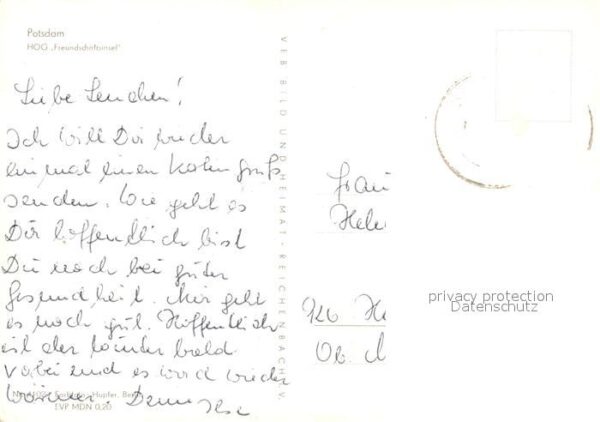 Potsdam
HOG „Freundschaftsinsel"
Liebe Lenchen!
Ich will Dir wieder
einmal einen Karten gruß
senden. Wie geht es
Dir hoffendlich bist
Du noch bei guter
Gesundheit. Mir geht
es noch gut. Hoffentlich
ist der Winter bald
vorbei und es wird wieder
wärmer. Denn
Hupfer, Berlin
EVP MDN 0,20
VEB BILD UND HEIMAT · REICHENBACH V
Frau
Hele
He
Ob
privacy protection
Datenschutz